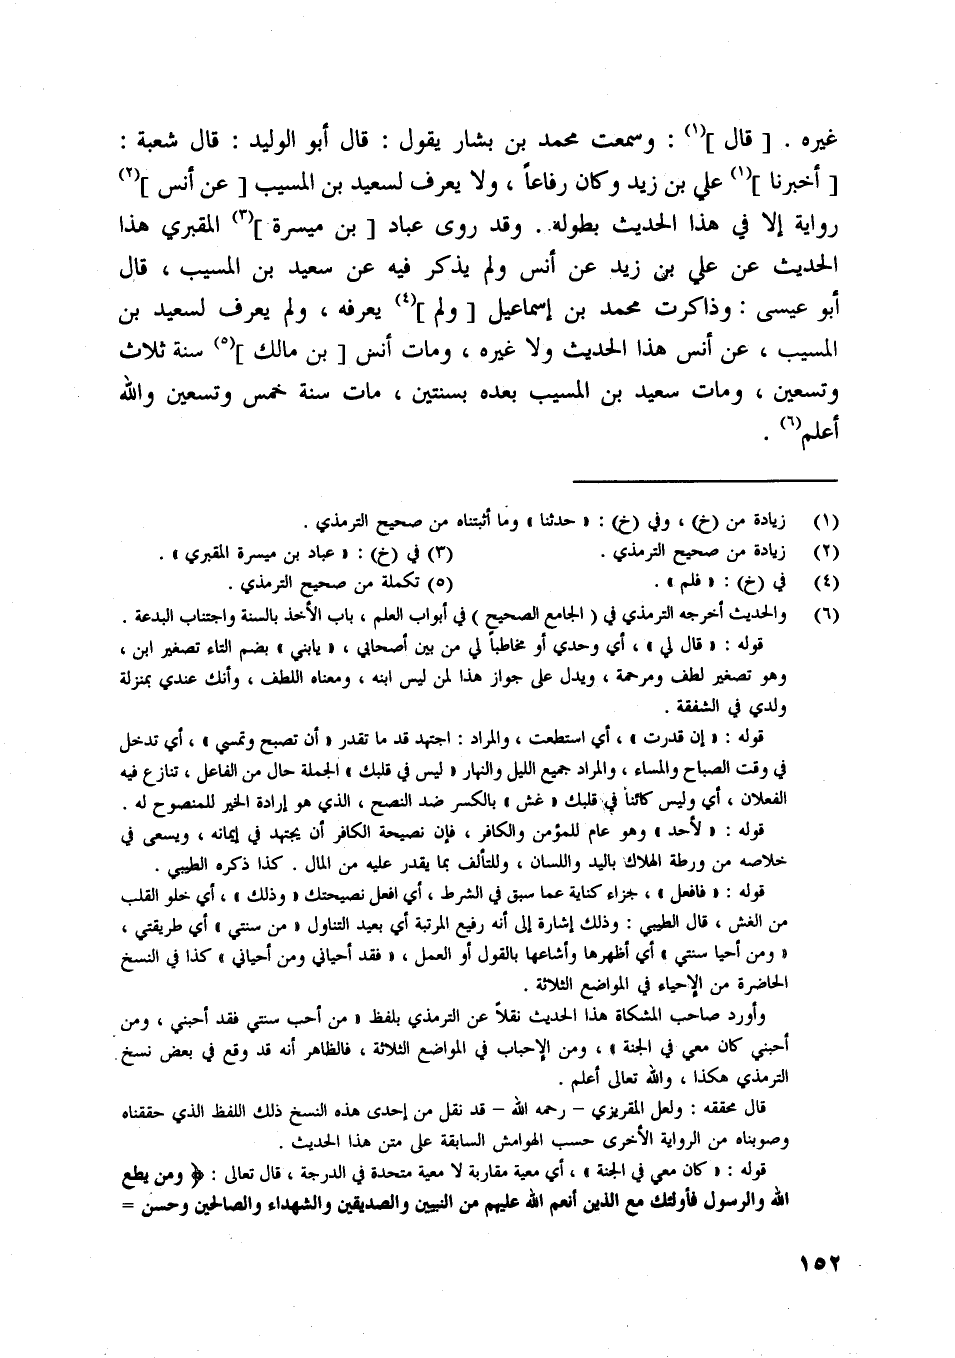 غيره . [ قال ](١) : وسمعت محمد بن بشار يقول : قال أبو الوليد : قال شعبة :
[ أخبرنا ](١) علي بن زيد وكان رفاعاً ، ولا يعرف لسعيد بن المسيب [ عن أنس ](٢)
رواية إلا في هذا الحديث بطوله . وقد روى عباد [ بن ميسرة ](٣) المقبري هذا
الحديث عن علي بن زيد عن أنس ولم يذكر فيه عن سعيد بن المسيب ، قال
أبو عيسى : وذاكرت محمد بن إسماعيل [ ولم ](٤) يعرفه ، ولم يعرف لسعيد بن
المسيب ، عن أنس هذا الحديث ولا غيره ، ومات أنس [ بن مالك ](٥) سنة ثلاث
وتسعين ، ومات سعيد بن المسيب بعده بسنتين ، مات سنة خمس وتسعين والله
أعلم(٦) .
(١) زيادة من (خ) ، وفي (خ) : « حدثنا » وما أثبتناه من صحيح الترمذي .
(٢) زيادة من صحيح الترمذي . (٣) في (خ) : « عباد بن ميسرة المقبري » .
(٤) في (خ) : « فلم » . (٥) تكملة من صحيح الترمذي .
(٦) والحديث أخرجه الترمذي في ( الجامع الصحيح ) في أبواب العلم ، باب الأخذ بالسنة واجتناب البدعة .
قوله : « قال لي » ، أي وحدي أو مخاطباً لي من بين أصحابي ، « يابني » بضم التاء تصغير ابن ،
وهو تصغير لطف ومرحمة ، ويدل على جواز هذا لمن ليس ابنه ، ومعناه اللطف ، وأنك عندي بمنزلة
ولدي في الشفقة .
قوله : « إن قدرت » ، أي استطعت ، والمراد : اجتهد قد ما تقدر « أن تصبح وتمسي » ، أي تدخل
في وقت الصباح والمساء ، والمراد جميع الليل والنهار « ليس في قلبك » الجملة حال من الفاعل ، تنازع فيه
الفعلان ، أي وليس كائناً في قلبك « غش » بالكسر ضد النصح ، الذي هو إرادة الخير للمنصوح له .
قوله : « لأحد » وهو عام للمؤمن والكافر ، فإن نصيحة الكافر أن يجتهد في إيمانه ، ويسعى في
خلاصه من ورطة الهلاك باليد واللسان ، وللتألف بما يقدر عليه من المال . كذا ذكره الطيبي .
قوله : « فافعل » ، جزاء كناية عما سبق في الشرط ، أي افعل نصيحتك « وذلك » ، أي خلو القلب
من الغش ، قال الطيبي : وذلك إشارة إلى أنه رفيع المرتبة أي بعيد التناول « من سنتي » أي طريقتي ،
« ومن أحيا سنتي » أي أظهرها وأشاعها بالقول أو العمل ، « فقد أحياني ومن أحياني » كذا في النسخ
الحاضرة من الإحياء في المواضع الثلاثة .
وأورد صاحب المشكاة هذا الحديث نقلاً عن الترمذي بلفظ « من أحب سنتي فقد أحبني ، ومن
أحبني كان معي في الجنة » ، ومن الإحباب في المواضع الثلاثة ، فالظاهر أنه قد وقع في بعض نسخ
الترمذي هكذا ، والله تعالى أعلم .
قال محققه : ولعل المقريزي – رحمه الله – قد نقل من إحدى هذه النسخ ذلك اللفظ الذي حققناه
وصوبناه من الرواية الأخرى حسب الهوامش السابقة على متن هذا الحديث .
قوله : « كان معي في الجنة » ، أي معية مقاربة لا معية متحدة في الدرجة ، قال تعالى : ﴿ ومن يطع
الله والرسول فأولئك مع الذين أنعم الله عليهم من النبيين والصديقين والشهداء والصالحين وحسن =
١٥٢